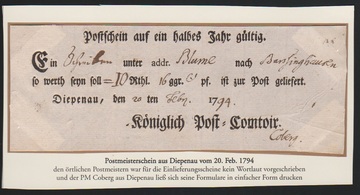 Postschein auf ein halbes Jahr gültig.
Ein Schreiben unter addr. Blume nach Barsinghausen
so werth seyn soll = 10 Rthl. 16 ggr. pf. ist zur Post geliefert.
Diepenau, den 20 ten Feb. 1794.
Königlich Post-Comtoir.
Coberg.
Postmeisterschein aus Diepenau vom 20. Feb. 1794
den örtlichen Postmeistern war für die Einlieferungsscheine kein Wortlaut vorgeschrieben
und der PM Coberg aus Diepenau ließ sich seine Formulare in einfacher Form drucken